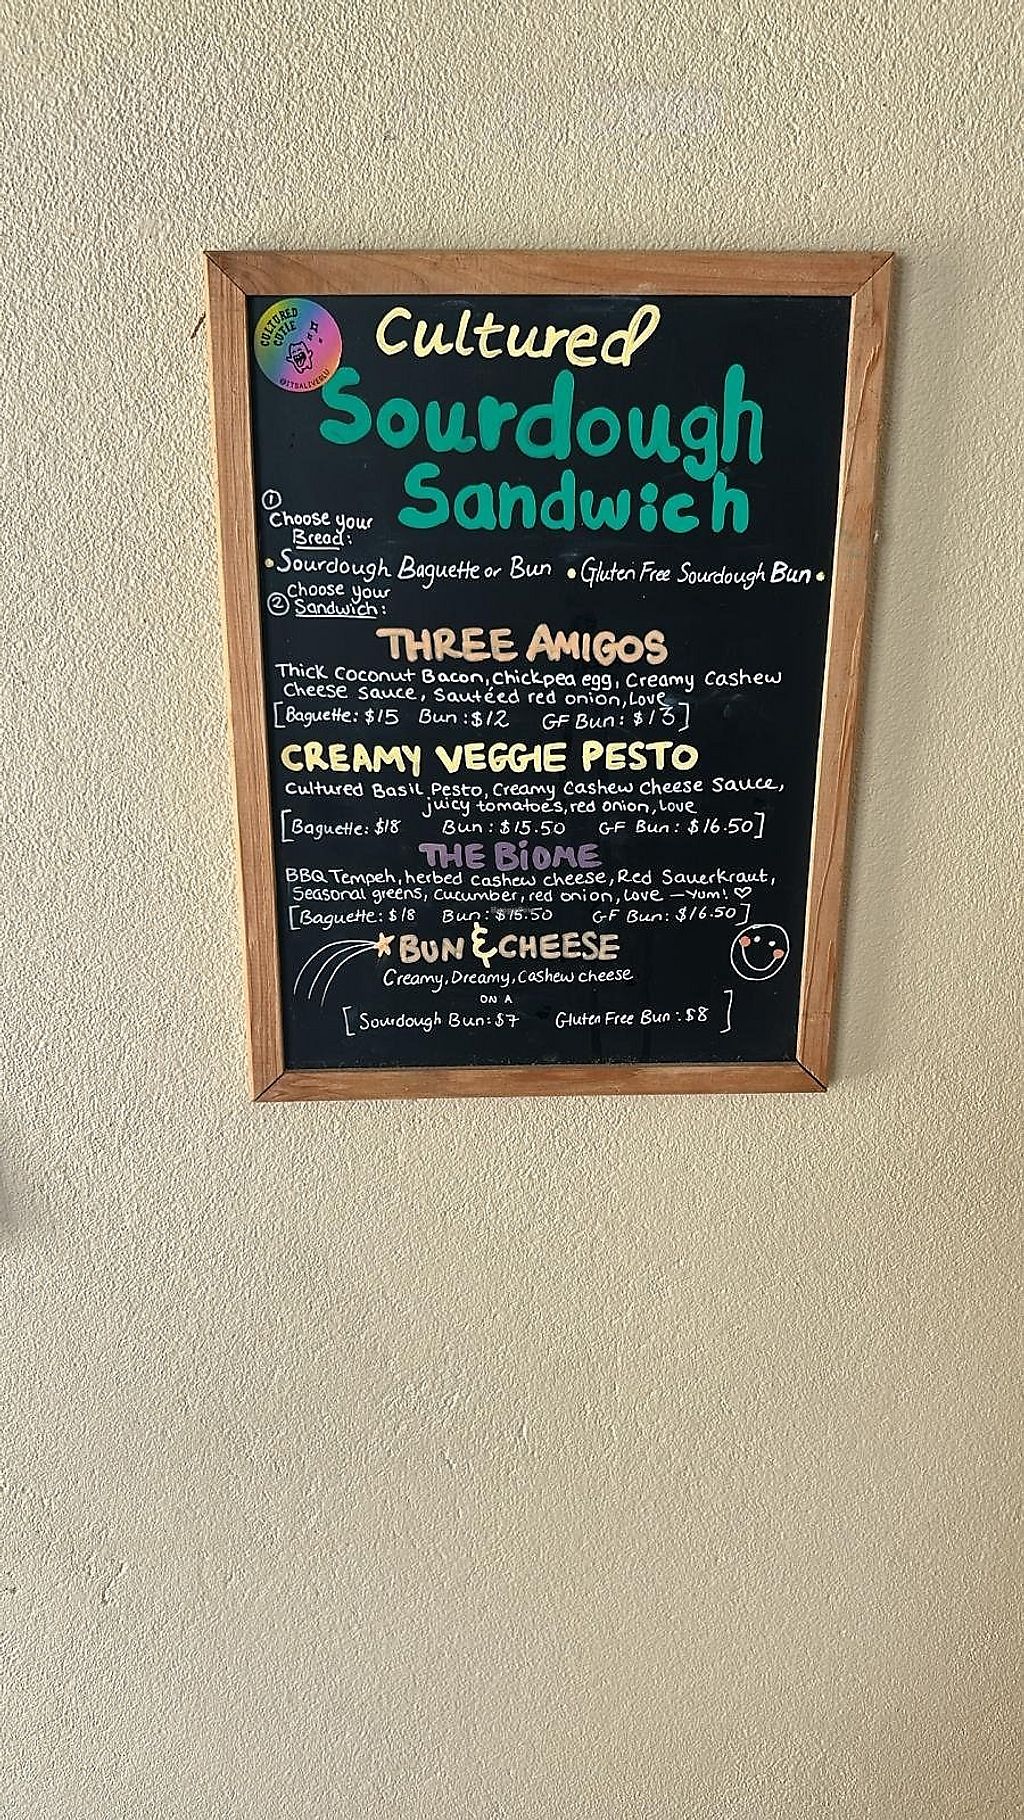 CULTURED
CUTIE
@ITSALIVEGLU
Cultured
Sourdough
Sandwich
① Choose your
Bread:
• Sourdough Baguette or Bun • Gluten Free Sourdough Bun •
② Choose your
Sandwich:
THREE AMIGOS
Thick Coconut Bacon, Chickpea egg, Creamy Cashew
Cheese Sauce, Sautéed red onion, Love
[Baguette: $15 Bun: $12 GF Bun: $13]
CREAMY VEGGIE PESTO
Cultured Basil Pesto, Creamy Cashew Cheese Sauce,
juicy tomatoes, red onion, Love
[Baguette: $18 Bun: $15.50 GF Bun: $16.50]
THE BiOME
BBQ Tempeh, herbed cashew cheese, Red Sauerkraut,
Seasonal greens, Cucumber, red onion, Love — Yum! ♡
[Baguette: $18 Bun: $15.50 GF Bun: $16.50]
BUN & CHEESE
Creamy, Dreamy, Cashew cheese
ON A
[Sourdough Bun: $7 Gluten Free Bun: $8]